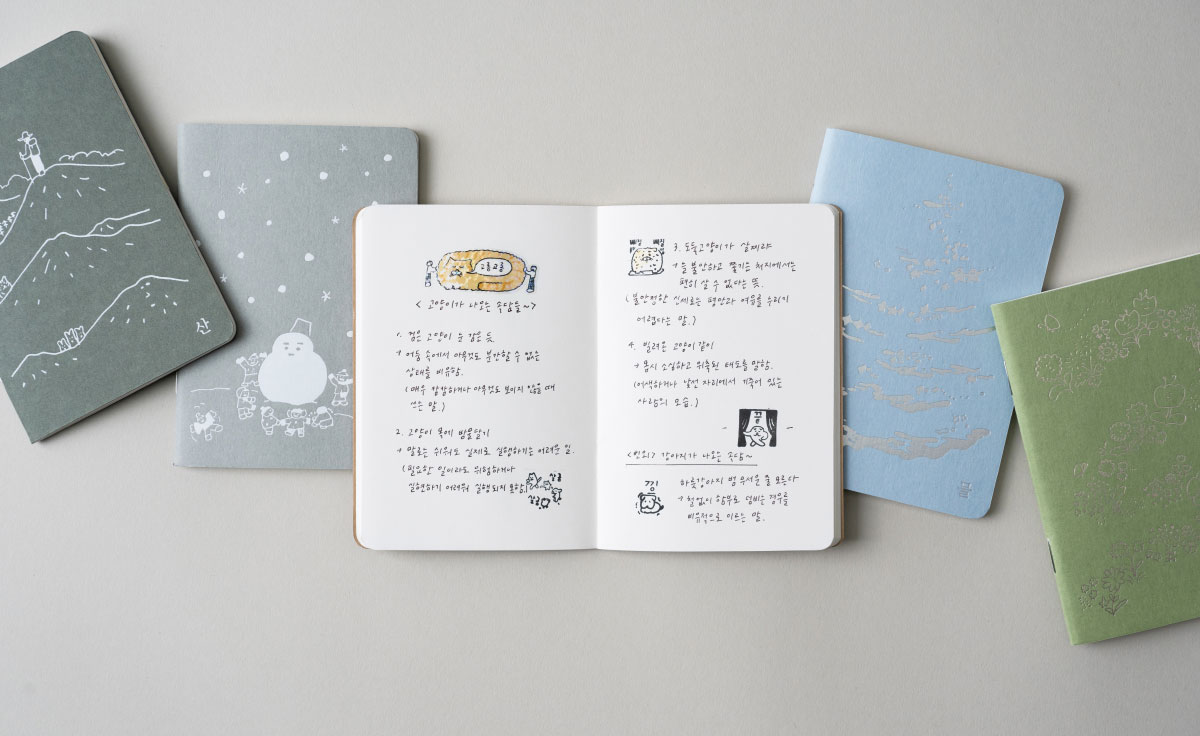 산
고롱고롱
< 고양이가 나오는 속담들~>
1. 검은 고양이 눈 감은 듯
→ 어둠 속에서 아무것도 분간할 수 없는
상태를 비유함.
(매우 캄캄하거나 아무것도 보이지 않을 때
쓰는 말.)
2. 고양이 목에 방울달기
→ 말로는 쉬워도 실제로 실행하기는 어려운 일.
(필요한 일이라도 위험하거나
실행하기 어려워 실행되지 못함)
살금
살금
3. 도둑고양이가 살찌랴
→ 늘 불안하고 쫓기는 처지에서는
편히 살 수 없다는 뜻.
(불안정한 신세로는 평안과 여유를 누리기
어렵다는 말.)
4. 빌려온 고양이같이
→ 몹시 소심하고 위축된 태도를 말함.
(어색하거나 낯선 자리에서 기죽어 있는
사람의 모습.)
- 끝 -
<번외> 강아지가 나오는 속담~
낑!
하룻강아지 범 무서운 줄 모른다
→ 철없이 함부로 덤비는 경우를
비유적으로 이르는 말.